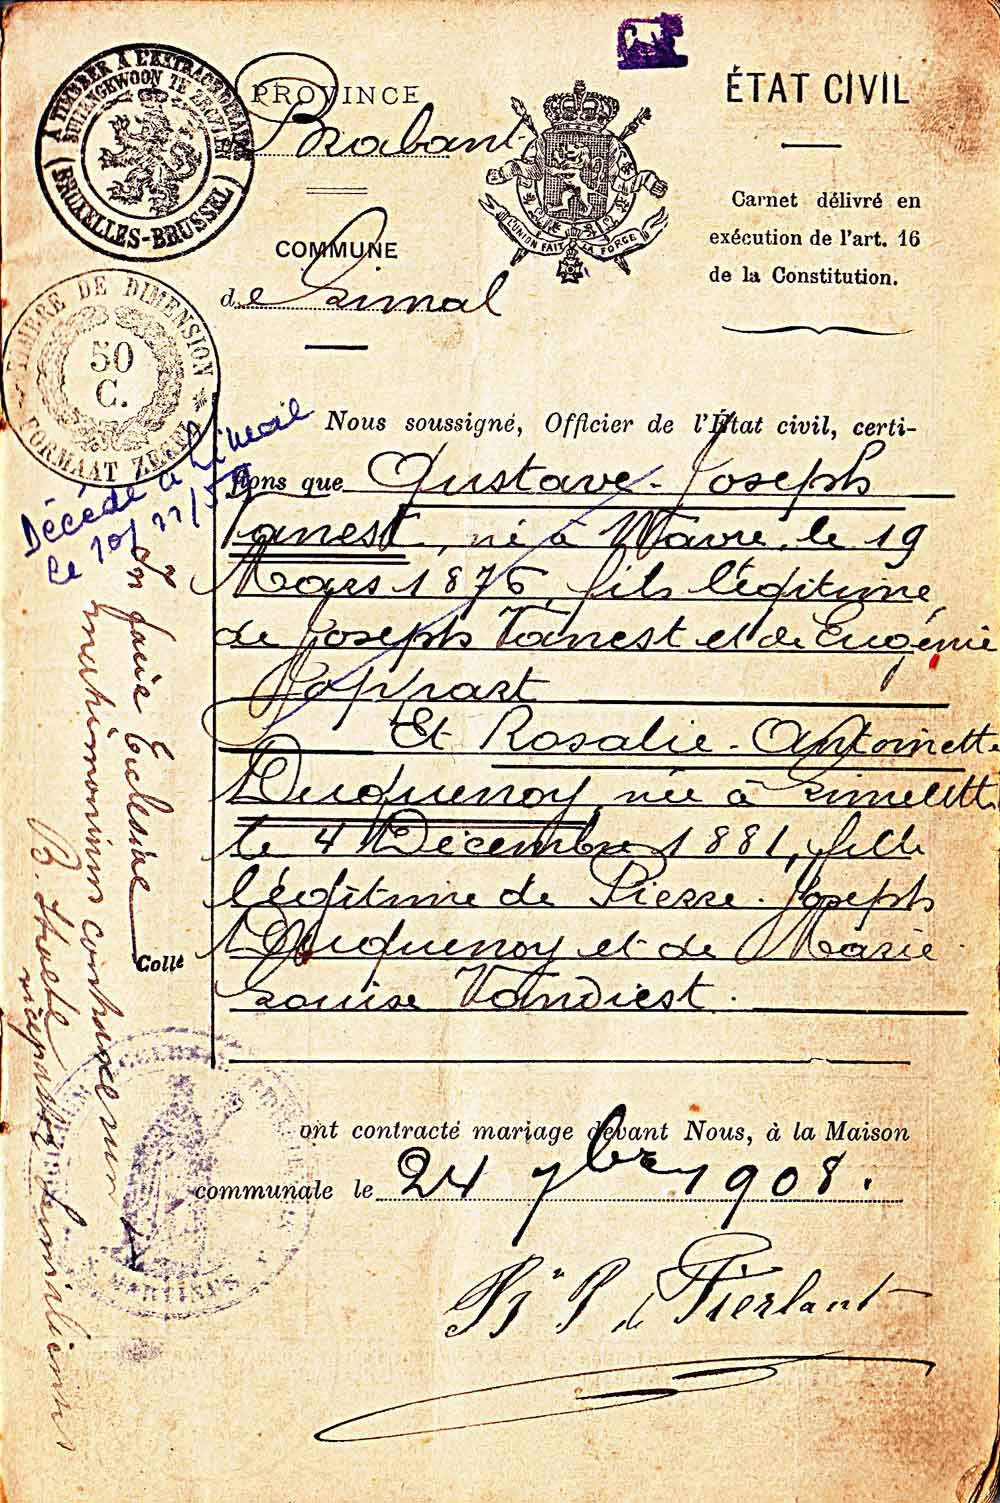 A TIMBER A L'EXTRAORDINAIRE
BUITENGEWOON TE ZEGELEN
BRUXELLES-BRUSSEL
PROVINCE
Brabant
COMMUNE
de Limal
L'UNION FAIT LA FORCE
ÉTAT CIVIL
Carnet délivré en
exécution de l'art. 16
de la Constitution.
TIMBRE DE DIMENSION
50
C.
FORMAAT ZEGEL
Décédé à Limal
le 10/11/59
Nous soussigné, Officier de l'État civil, certi-
fions que Gustave-Joseph
Vanest, né à Wavre, le 19
Mars 1876, fils légitime
de Joseph Vanest et de Eugénie
Et Rosalie-Antoinette
Duquenoy, née à Limelette
le 4 Décembre 1881, fille
légitime de Pierre-Joseph
Duquenoy et de Marie
Louise Vandiest.
ont contracté mariage devant Nous, à la Maison
communale le 24 7bre 1908.
Bn P. de Pierlant
In facie Ecclesiae
matrimonium contraxerunt
Collé
MARTINUS